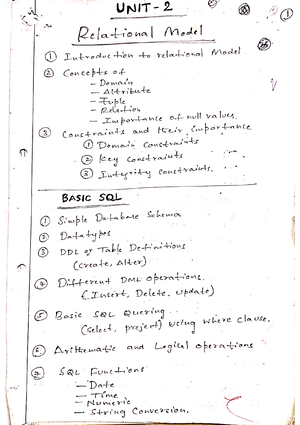 UNIT-2
1
Relational Model
① Introduction to relational Model
② Concepts of
— Domain
— Attribute
— Tuple
— Relation
— Importance of null values.
③ Constraints and their importance
① Domain Constraints
② Key Constraints
③ Integrity Constraints.
BASIC SQL
① Simple Database Schema
② Datatypes
③ DDL or Table Definitions
(Create, Alter)
④ Different DML operations.
(Insert, Delete, update)
⑤ Basic SQL Querying
(select, project) using where clause.
⑥ Arithmetic and Logical operations
⑦ SQL Functions
— Date
— Time
— Numeric
— String Conversion.